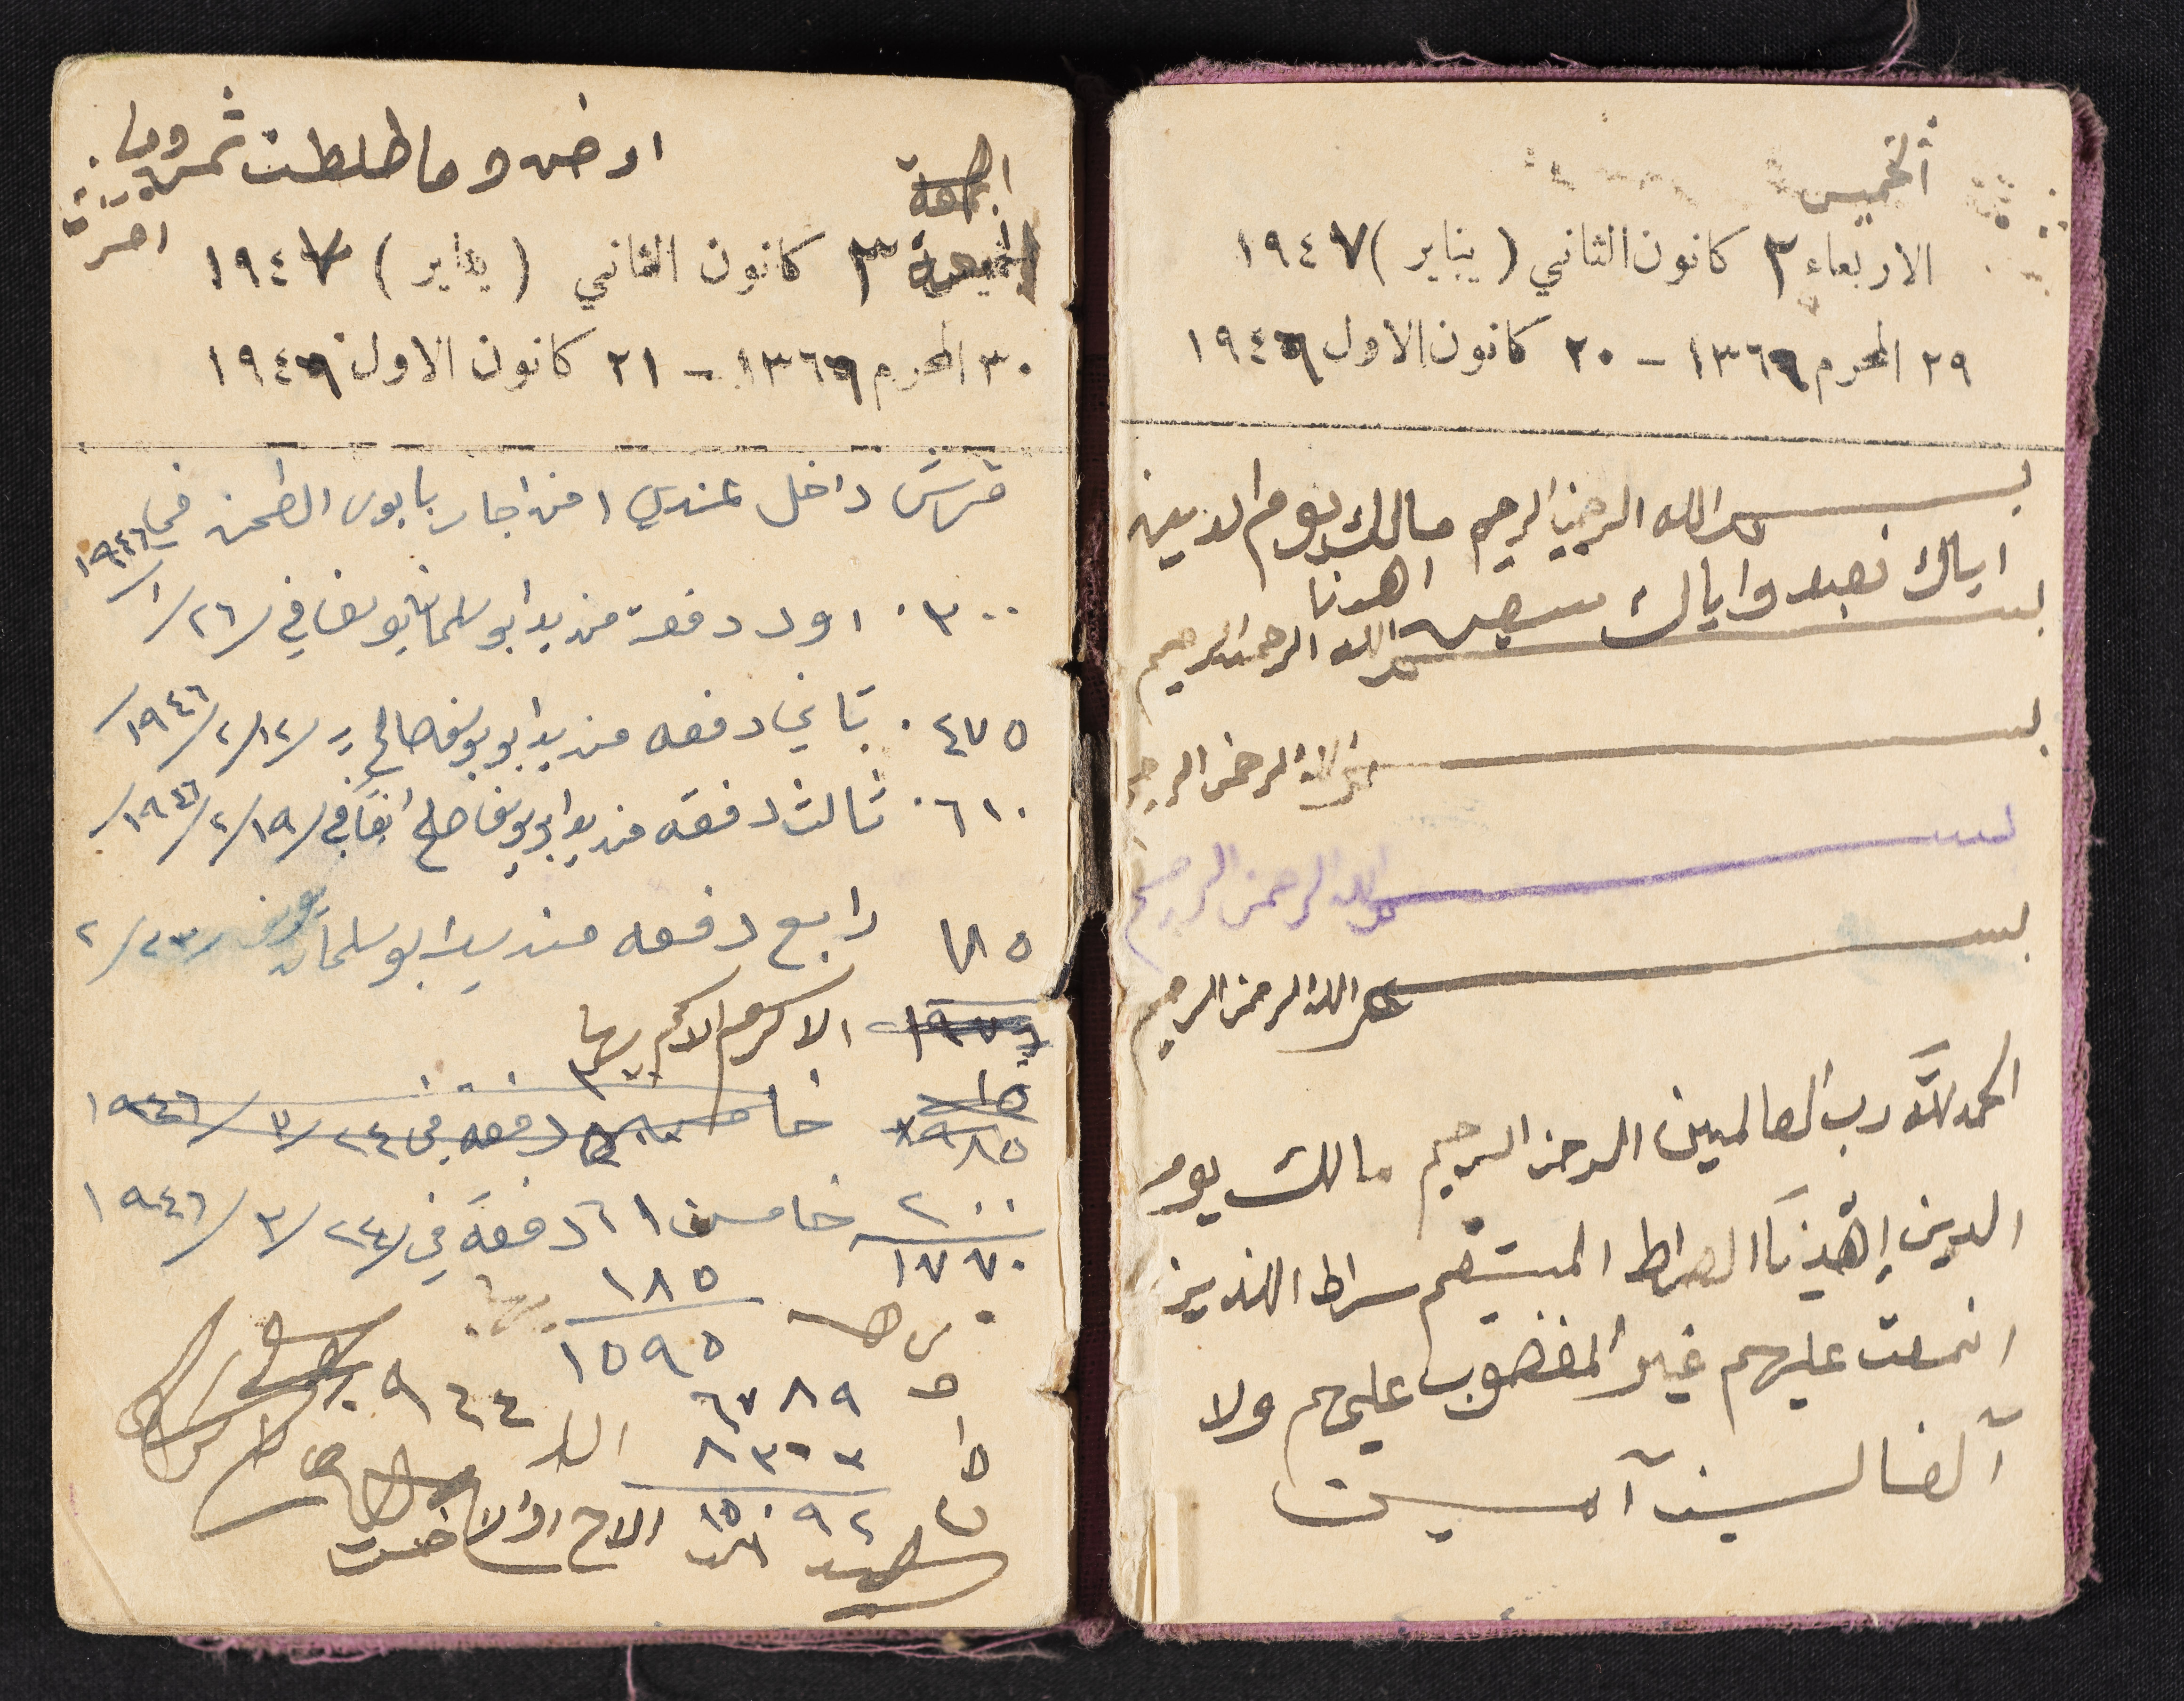 الخميس
الاربعاء ٢ كانون الثاني (يناير) ١٩٤٧
٢٩ المحرم ١٣٦٦ - ٢٠ كانون الاول ١٩٤٦
بسم الله الرحمن الرحيم مالك يوم الدين
اياك نعبد واياك اهدنا
بسم الله الرحمن الرحيم
بسم الله الرحمن الرحيم
بسم الله الرحمن الرحيم
بسم الله الرحمن الرحيم
الحمد لله رب العالمين الرحمن الرحيم مالك يوم
الدين إهْدِنَا الصراط المستقيم سراط الذين
انعمت عليهم غير المغضوب عليهم ولا
آلضالين آمين
ارض وما طلطت
الجمعة
الجمعة ٣ كانون الثاني (يناير) ١٩٤٧
٣٠ المحرم ١٣٦٦ - ٢١ كانون الاول ١٩٤٦
قرش داخل عندي من اجار بابور الطحن في ١٩٤٦
٣٠٠ اول دفعة من يد ابو سلمان في ٢٦/١/
٤٧٥ تاني دفعه من يد ابو يوسف صالح ١٢/٢/١٩٤٦/
٦١٠ ثالث دفعه من يد ابو يوسف صالح في ١٩/٢/١٩٤٦/
١٨٥ رابع دفعه من يد ابو سلمان ٢٣/٢
الاكرم الاكرم
خامس دفعه في ٢٤/٣/١٩٤٦
٢٠٠ خامس دفعة في ٢٤/٣/١٩٤٦
١٧٧٠
١٨٥
١٥٩٥
٦٧٨٩
٨٣٠٣
١٥٠٩٢